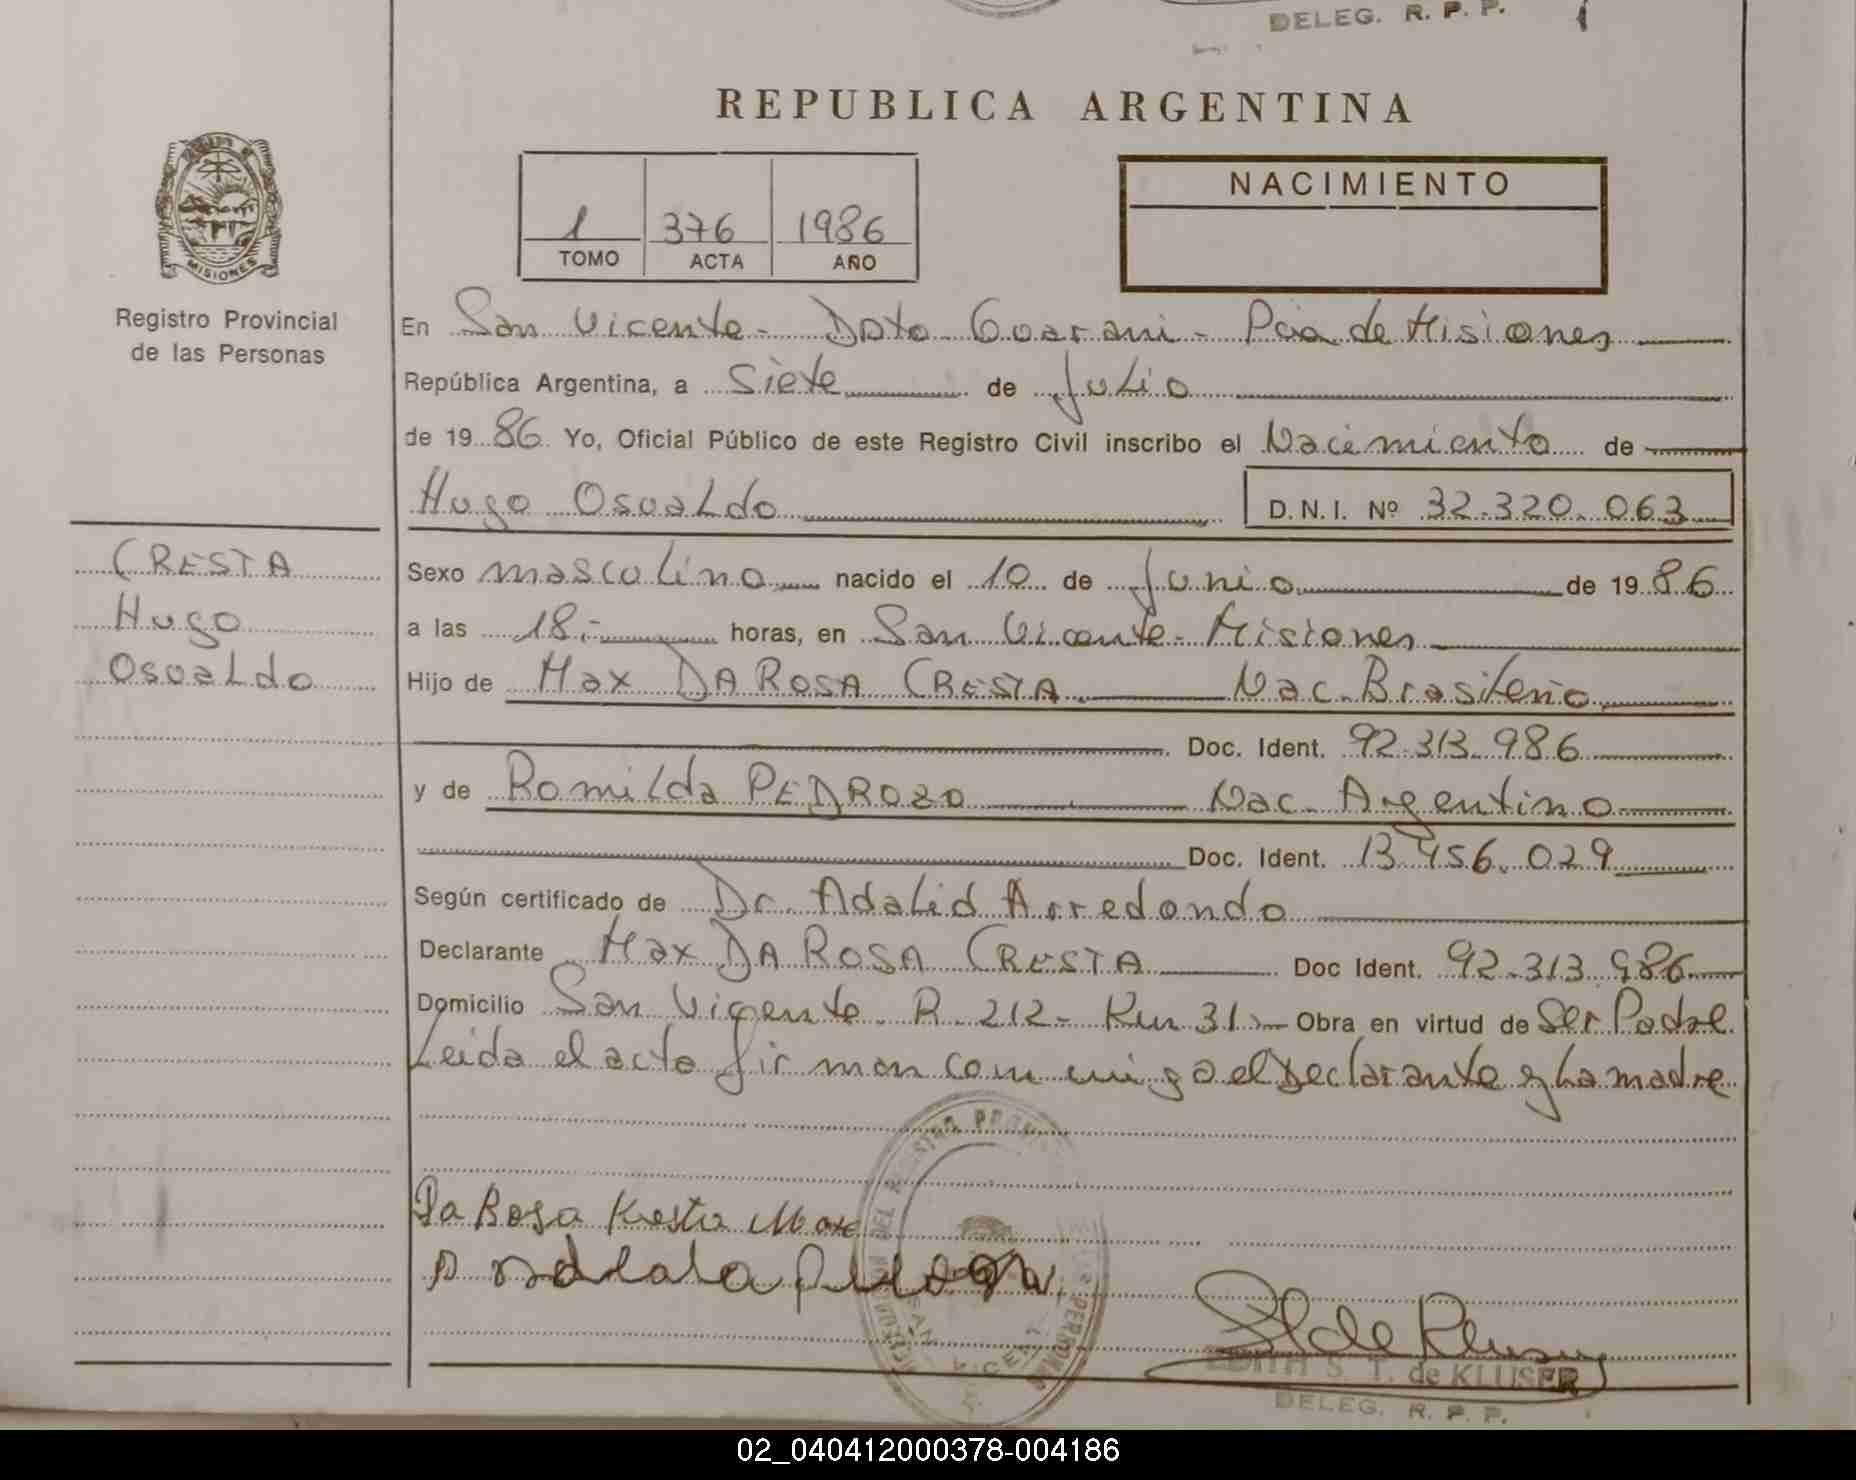 DELEG. R. P. P.
REPUBLICA ARGENTINA
MISIONES
Registro Provincial
de las Personas
1 376 1986
TOMO ACTA AÑO
NACIMIENTO
En San Vicente - Dpto Guarani - Pcia de Misiones
República Argentina, a Siete de Julio
de 1986 Yo, Oficial Público de este Registro Civil inscribo el Nacimiento de
Hugo Osvaldo D.N.I. Nº 32.320.063
CRESTA
Hugo
Osvaldo
Sexo masculino nacido el 10 de Junio de 1986
a las 18:- horas, en San Vicente - Misiones
Hijo de Max DA ROSA CRESTA Nac. Brasileño
Doc. Ident. 92.313.986
y de Romilda PEDROZO Nac. Argentino
Doc. Ident. 13.456.029
Según certificado de Dr. Adalid Arredondo
Declarante Max DA ROSA CRESTA Doc Ident. 92.313.986
Domicilio San Vicente R. 212 - Km 31 - Obra en virtud de Ser Padre
Leida el acta firman conmigo el Declarante y La madre
Da Rosa Kresta Max
EDITH S. T. de KLUSER
DELEG. R. P. P.
02_040412000378-004186